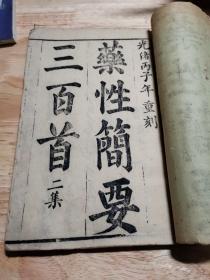 光緒丙子年重刻
藥性簡要
三百首二集